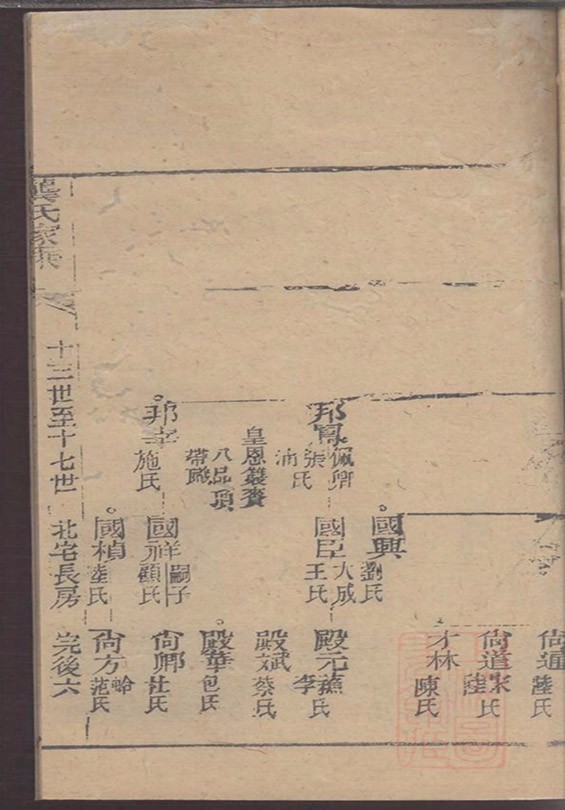 尚通 陸氏
尚道 宋氏 陸
才林 陳氏
國興 劉氏
邦鳳 佩 張氏
國臣 大成 王氏
殿元 蕉氏 李
殿斌 蔡氏
皇恩 賚
八品頂
帶
殿華 包氏
邦 施氏
國祥 嗣子 顧氏
尚卿 杜氏
國楨 陸氏
尚方 蛤 范氏
龔氏家乘
十三世至十七世
北宅長房
完後六